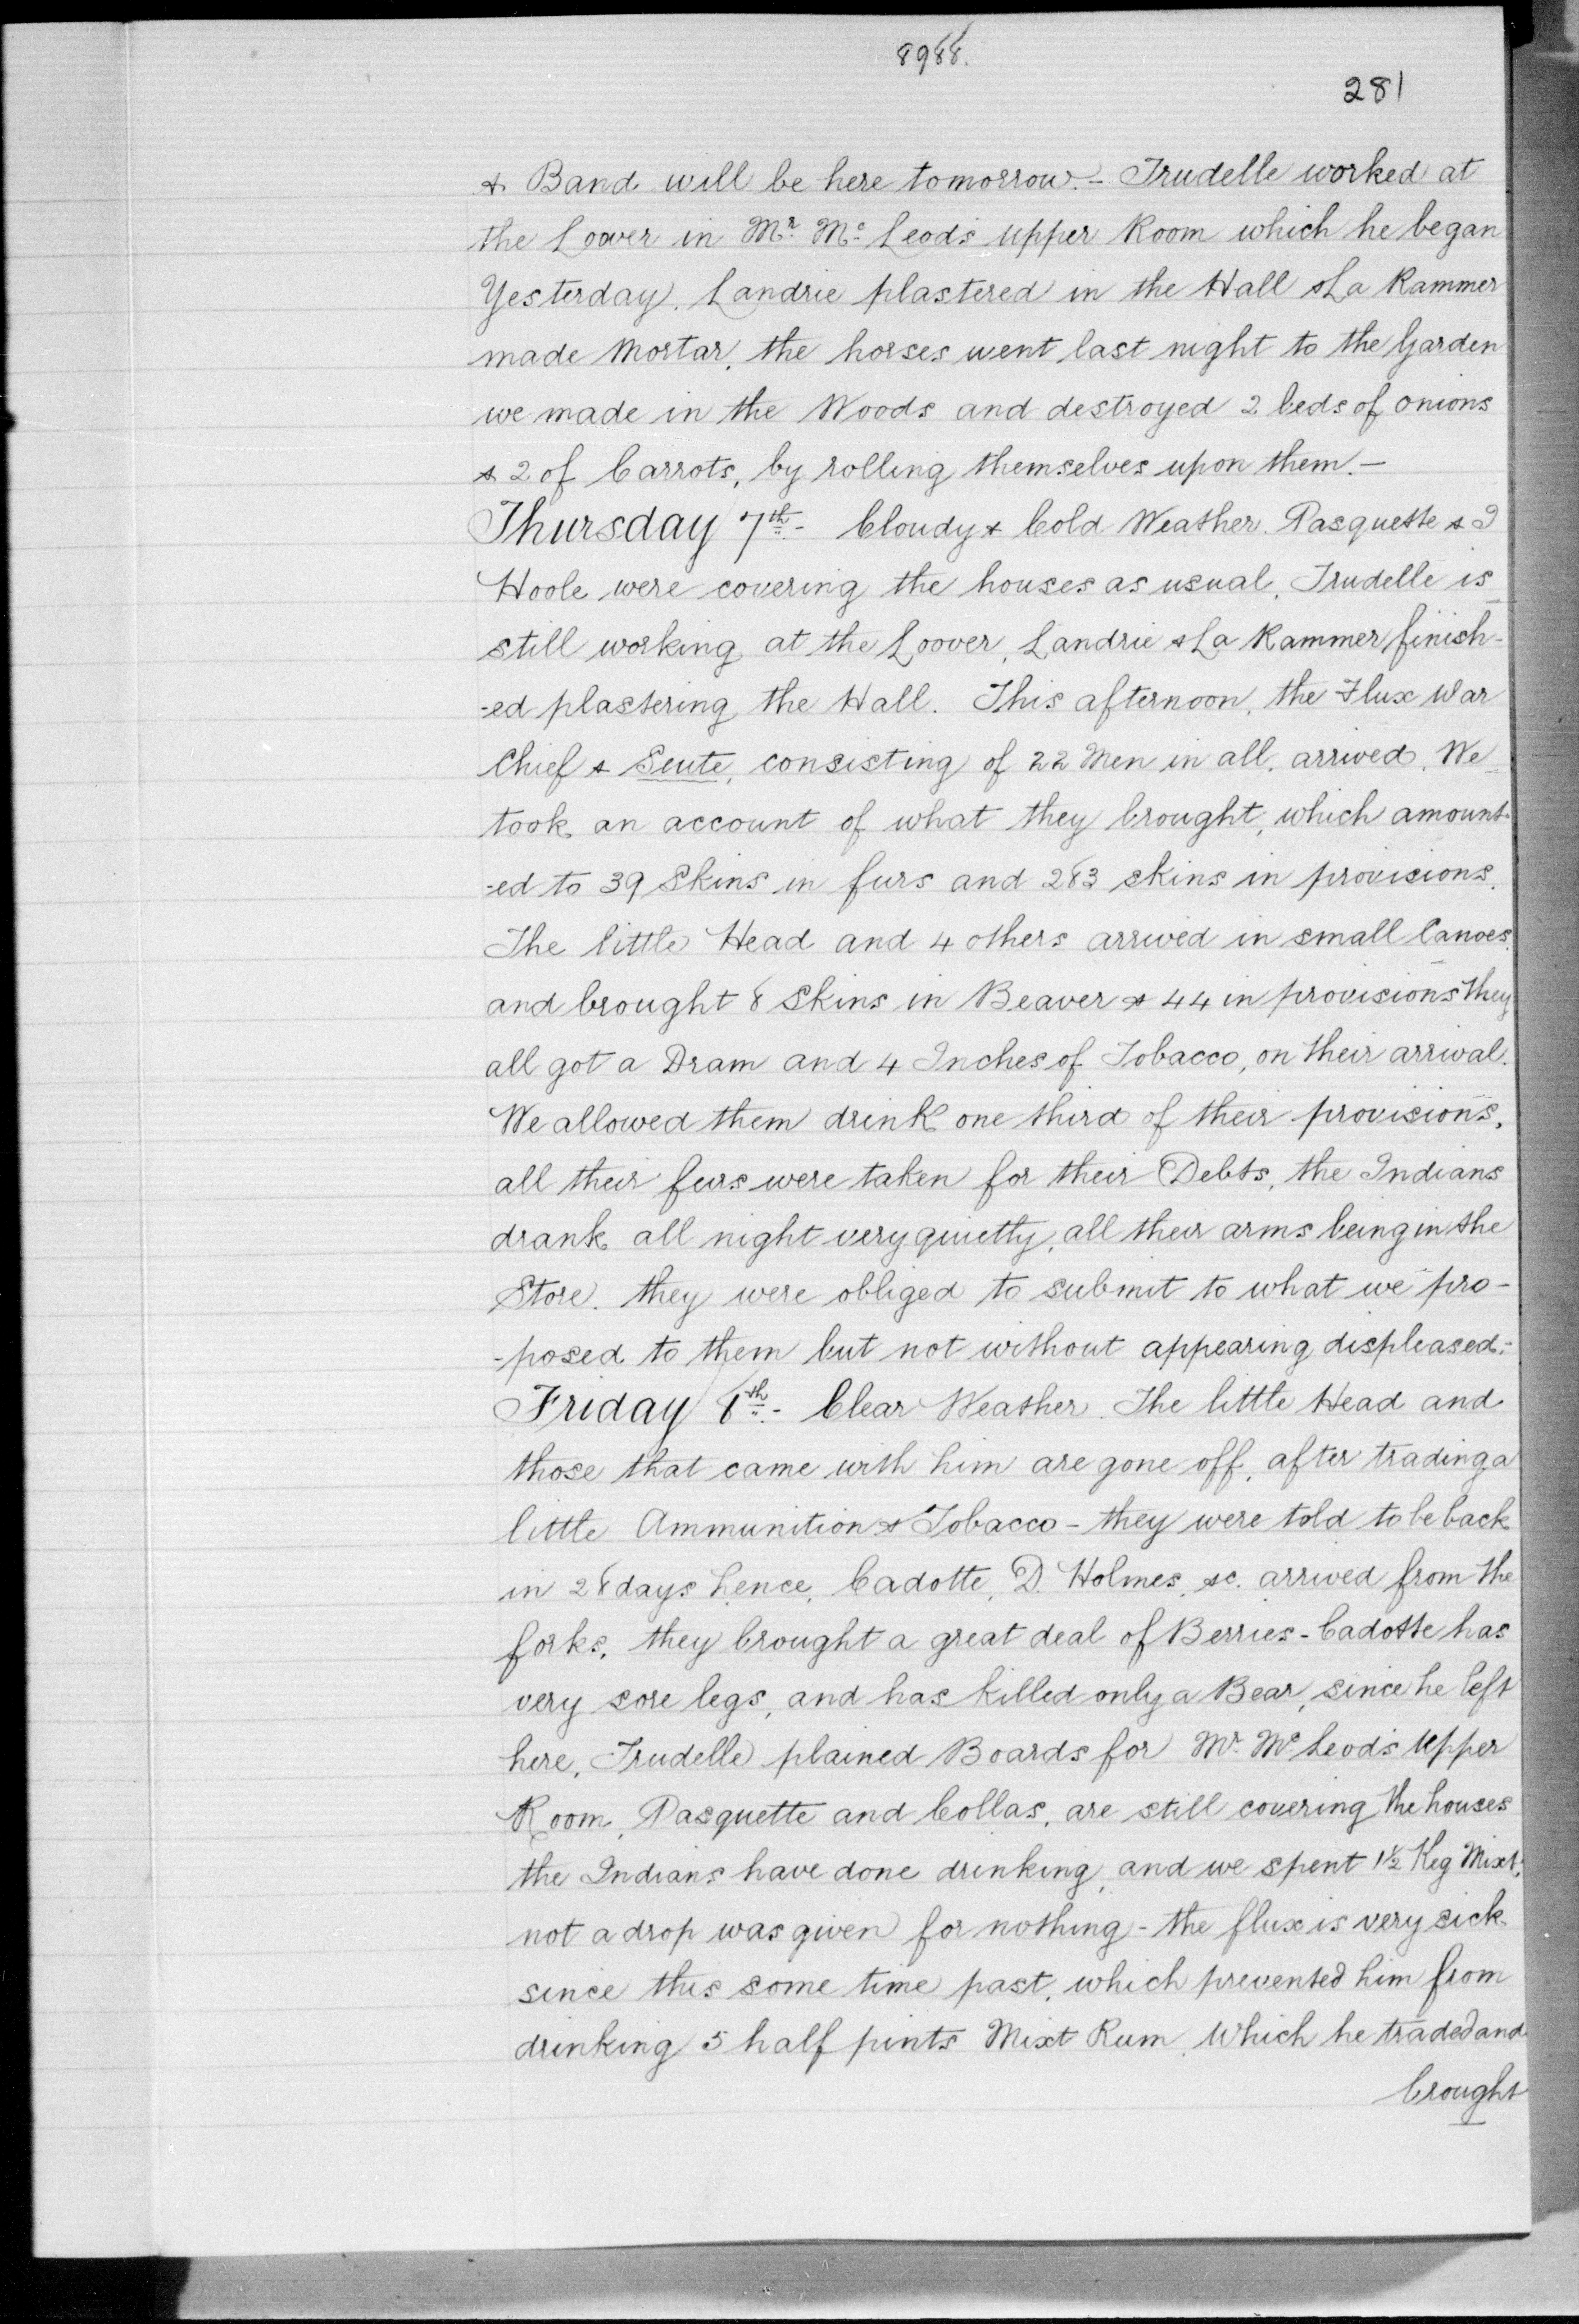 8988.
281
& Band will be here tomorrow. - Trudelle worked at
the Loover in Mr. Mc. Leods upper Room which he began
Yesterday. Landrie plastered in the Hall & La Rammer
made Mortar, the horses went last night to the Garden
we made in the Woods and destroyed 2 beds of onions
& 2 of Carrots, by rolling themselves upon them. -
Thursday 7th. - Cloudy & Cold Weather. Pasquette & I
Hoole were covering the houses as usual, Trudelle is
still working at the Loover, Landrie & La Rammer finish-
-ed plastering the Hall. This afternoon, the Flux War
Chief & Seute, consisting of 22 Men in all, arrived, We
took an account of what they brought, which amount-
-ed to 39 Skins in furs and 283 skins in provisions.
The little Head and 4 others arrived in small Canoes,
and brought 8 Skins in Beaver & 44 in provisions they
all got a Dram and 4 Inches of Tobacco, on their arrival.
We allowed them drink one third of their provisions,
all their furs were taken for their Debts, the Indians
drank all night very quietty, all their arms being in the
Store. they were obliged to submit to what we pro-
-posed to them but not without appearing displeased. -
Friday 8th. - Clear Weather. The little Head and
those that came with him are gone off, after trading a
little Ammunition & Tobacco - they were told to be back
in 28 days hence, Cadotte, D. Holmes, &c. arrived from the
forks, they brought a great deal of Berries - Cadotte has
very sore legs, and has killed only a Bear, since he left
here, Trudelle plained Boards for Mr. Mc Leod's Upper
Room, Pasquette and Collas, are still covering the houses
the Indians have done drinking, and we spent 1½ Keg Mixt,
not a drop was given for nothing - the flux is very sick
since this some time past, which prevented him from
drinking 5 half pints Mixt Rum, which he traded and
brought